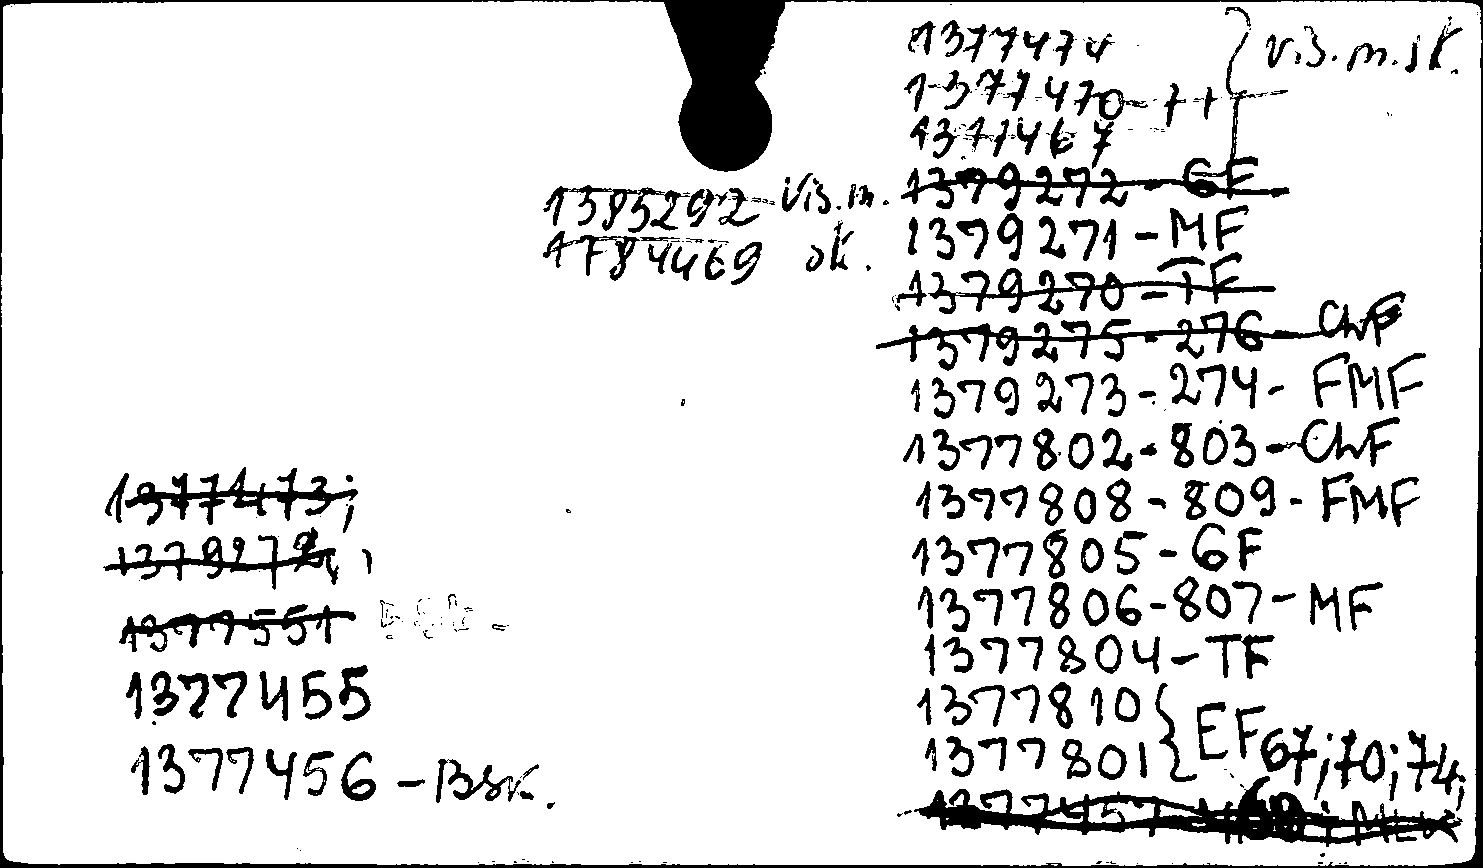 1377474
1377470-71 } vis.m.sk.
1377467
1379272-GF
1385292 Vis.m.
1379271-MF
1784469 sk.
1379270-TF
1379275-276-ChF
1379273-274-FMF
1377802-803-ChF
1377808-809-FMF
1377805-GF
1377806-807-MF
1377804-TF
1377810 } EF
1377801
67;70;74;
1377473;
1379272,
1377551
1377455
1377456-Bsk.
1377457